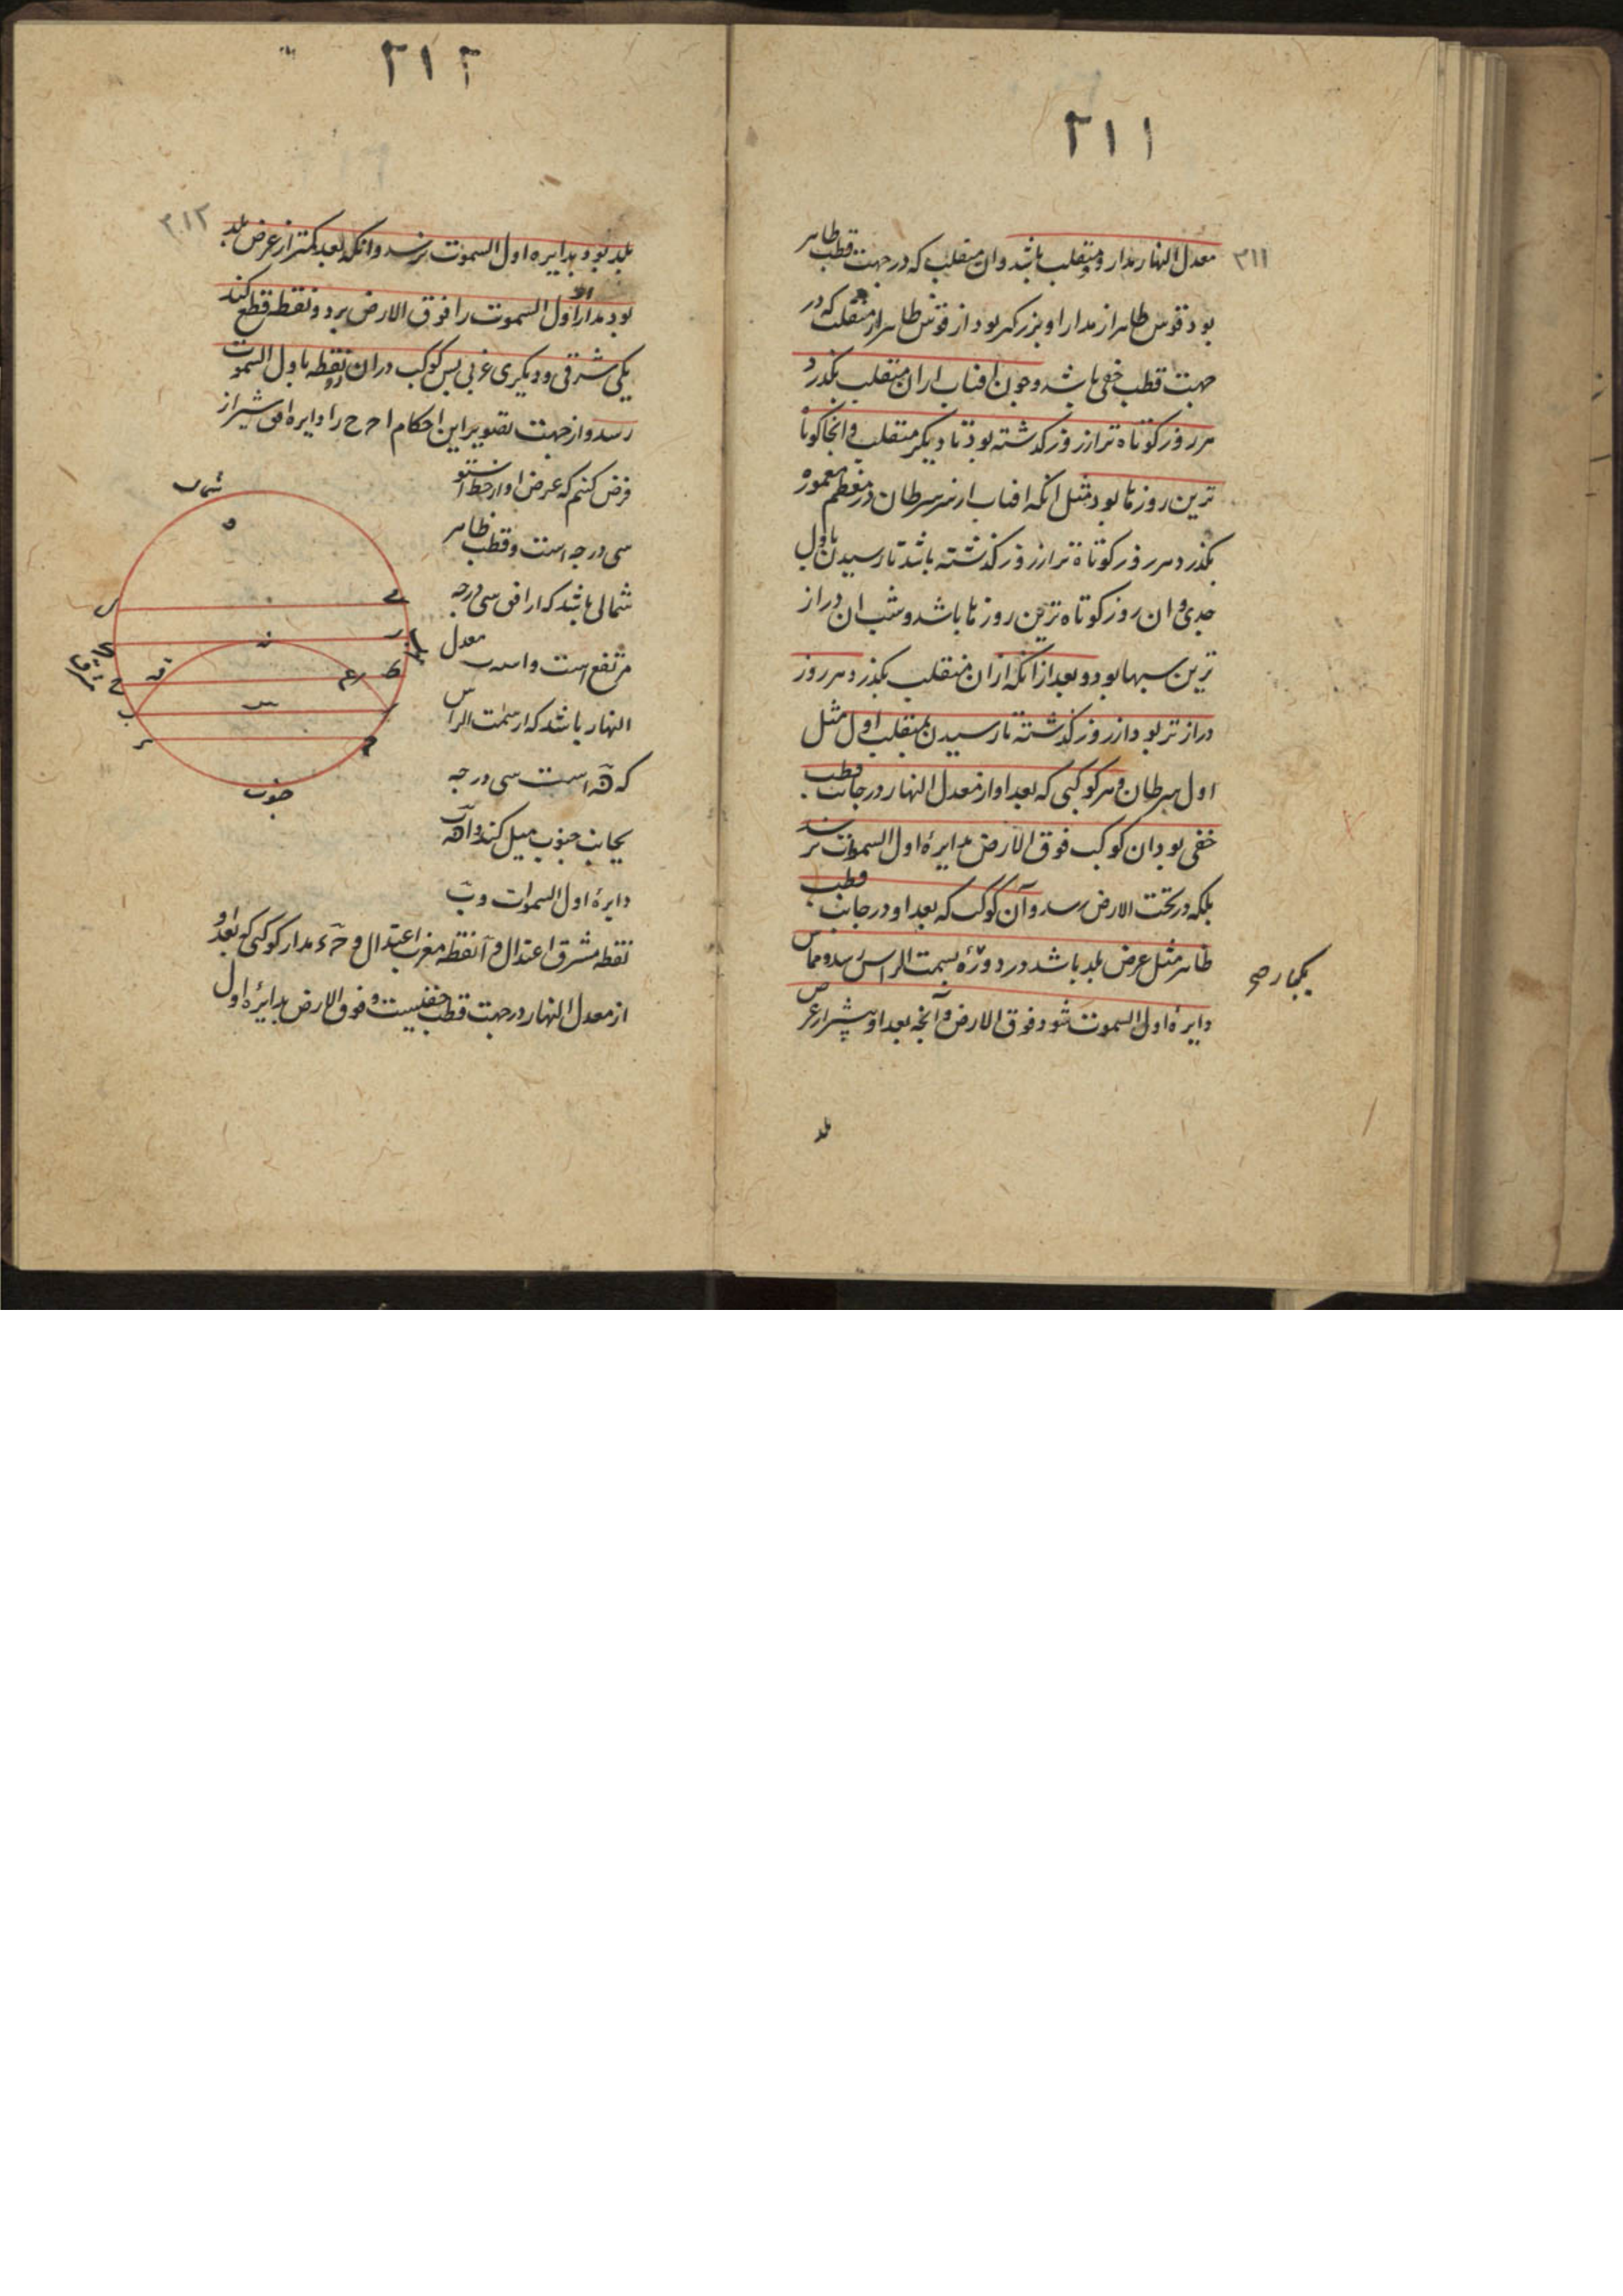 ۲۱۱
۲۱۱
معدل النهار مدار دو منقلب باشد وان منقلب که در جهت قطب ظاهر
بود قوس ظاهر از مدار او بزرکتر بود از قوس ظاهر از منقلب که در
جهت قطب خفی باشد و چون افتاب از ان منقلب بکذرد
هر روز کوتاه تر از روز کذشته بود تا دیکر منقلب و انجا کوتاه
ترین روزها بود مثل انکه افتاب از سر سرطان در معظم معموره
بکذرد هر روز کوتاه تر از روز کذشته باشد تا رسیدن باول
جدی و ان روز کوتاه ترین روزها باشد و شب ان دراز
ترین شبها بود و بعد از انکه از ان منقلب بکذرد هر روز
دراز تر بود از روز کذشته تا رسیدن بمنقلب اول مثل
اول سرطان و هر کوکبی که بعد او از معدل النهار در جانب قطب
خفی بود ان کوکب فوق الارض بدایرۀ اول السموت نرسد
بلکه در تحت الارض رسد و آن کوکب که بعد او در جانب قطب
ظاهر مثل عرض بلد باشد در دورۀ بسمت الراس رسد و مماس
دایرۀ اول السموت شود فوق الارض و آنچه بعد او بیشتر از عرض
بلد
۲۱۲
۲۱۲
بلد بود بدایره اول السموت نرسد وانکه بعد کمتر از عرض بلد
بود مدار او اول السموت را فوق الارض بر دو نقطه قطع کند
یکی شرقی و دیکری غربی پس کوکب در ان دو نقطه باول السموت
رسد و از جهت تصویر این احکام ا ح ح را دایره افق شیراز
فرض کنیم که عرض او از خط استوا
سی درجه است و قطب ظاهر
شمالی باشد که از افق سی درجه
مرتفع است و معدل
النهار باشد که از سمت الراس
که ه است سی درجه
بجانب جنوب میل کند و
دایرۀ اول السموات و ب
نقطه مشرق اعتدال و آ نقطه مغرب اعتدال و ح ء مدار کوکبی که بعد او
از معدل النهار در جهت قطب خفیست و فوق الارض بدایرۀ اول
شمال
جنوب